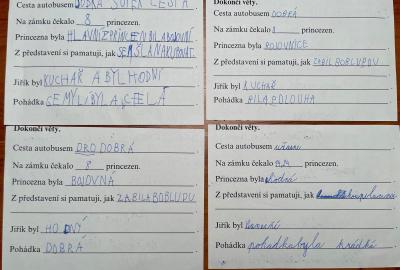 Cesta autobusem DOBRÁ SUPER CESTA
Na zámku čekalo 8 princezen.
Princezna byla HLAVNÍ PRINCEZN BILA BOJOVNÍ
Z představení si pamatuji, jak SEM ŠLA NAKUPOVAT
Jiřík byl KUCHAŘ A BYL HODNÍ
Pohádka SE MY LÍBYLA CELÁ
Dokonči věty.
Cesta autobusem DOBRÁ
Na zámku čekalo 8 princezen.
Princezna byla BOJOVNICE
Z představení si pamatuji, jak ZABILA OBLUDU
Jiřík byl KUCHAŘ
Pohádka BILA DLOUHÁ
Dokonči věty.
Cesta autobusem DOBRÁ
Na zámku čekalo 8 princezen.
Princezna byla BOJOVNÁ
Z představení si pamatuji, jak ZABILA OBLUDU
Jiřík byl HODNÝ
Pohádka DOBRÁ
Dokonči věty.
Cesta autobusem
Na zámku čekalo princezen.
Princezna byla hodná
Z představení si pamatuji, jak
Jiřík byl
Pohádka pohádka byla krátká